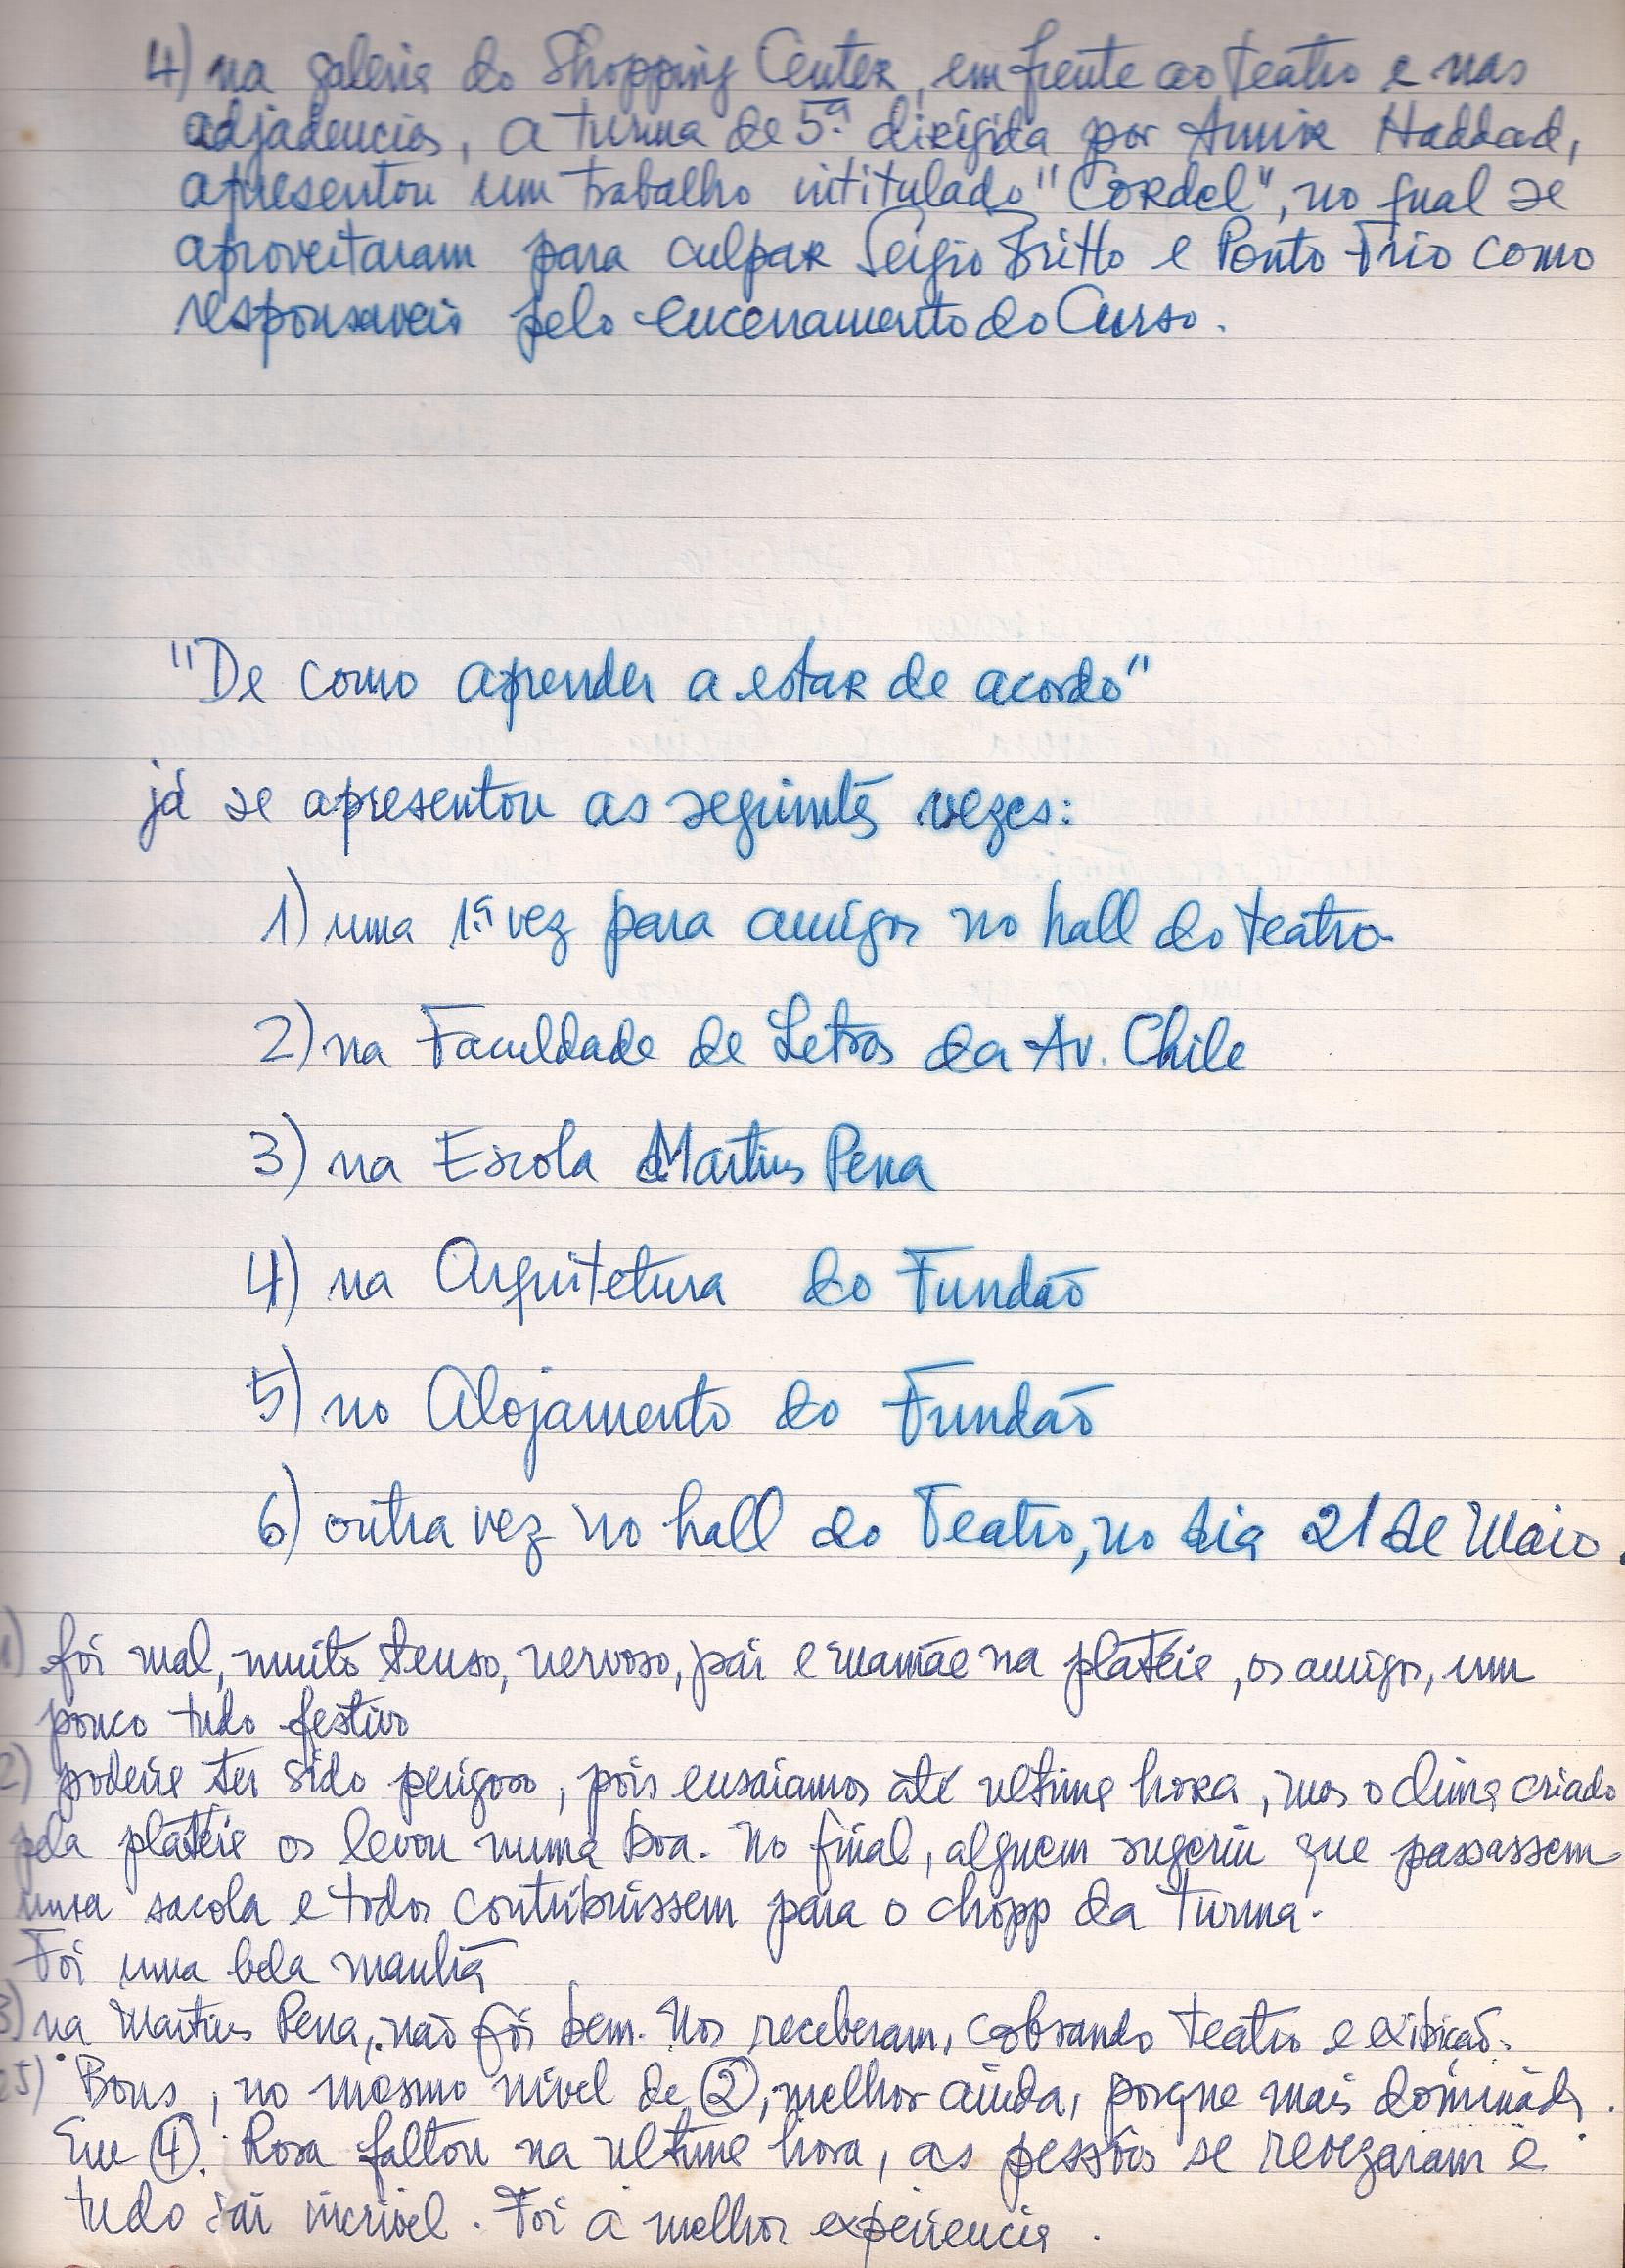 4) na galeria do Shopping Center, em frente ao teatro e nas
adjadencias, a turma de 5ª dirigida por Amir Haddad,
apresentou um trabalho intitulado "Cordel", no qual se
aproveitaram para culpar Sérgio Britto e Ponto Frio como
responsaveis pelo encerramento do Curso.
"De como aprender a estar de acordo"
já se apresentou as seguintes vezes:
1) uma 1ª vez para amigos no hall do teatro
2) na Faculdade de Letras da Av. Chile
3) na Escola Martins Pena
4) na Arquitetura do Fundão
5) no Alojamento do Fundão
6) outra vez no hall do Teatro, no dia 21 de Maio.
1) foi mal, muito tenso, nervoso, pai e mamãe na platéia, os amigos, um
pouco tudo festivo
2) poderia ter sido perigoso, pois ensaiamos até ultima hora, mas o clima criado
pela platéia os levou numa boa. No final, alguem sugeriu que passassem
uma sacola e todos contribuissem para o chopp da turma.
Foi uma bela manhã
3) na Martins Pena, não foi bem. Nos receberam, cobrando teatro e exibição.
5) Bons, no mesmo nivel de ②, melhor ainda, porque mais dominado.
Em ④. Rosa faltou na ultima hora, as pessoas se revezaram e
tudo sai incrivel. Foi a melhor experiencia.